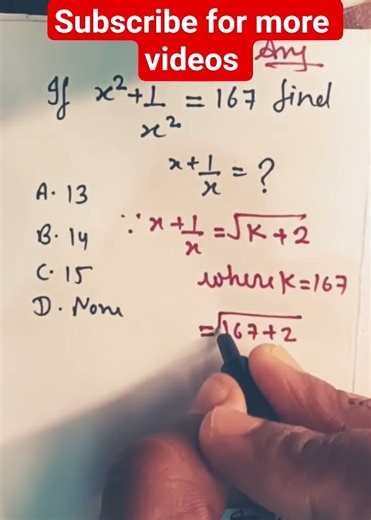 Subscribe for more
videos
Ans
If x² + 1/x² = 167 find
x + 1/x = ?
A. 13
B. 14
C. 15
D. None
∵ x + 1/x = √K+2
where K = 167
= √167+2